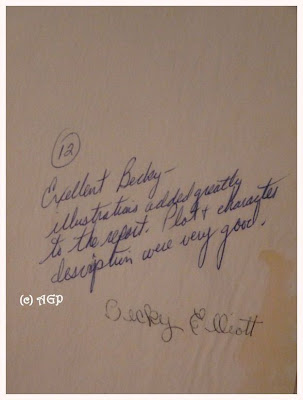 12
Excellent Becky-
illustrations added greatly
to the report. Plot & character
description were very good.
(c) AGP
Becky Elliott